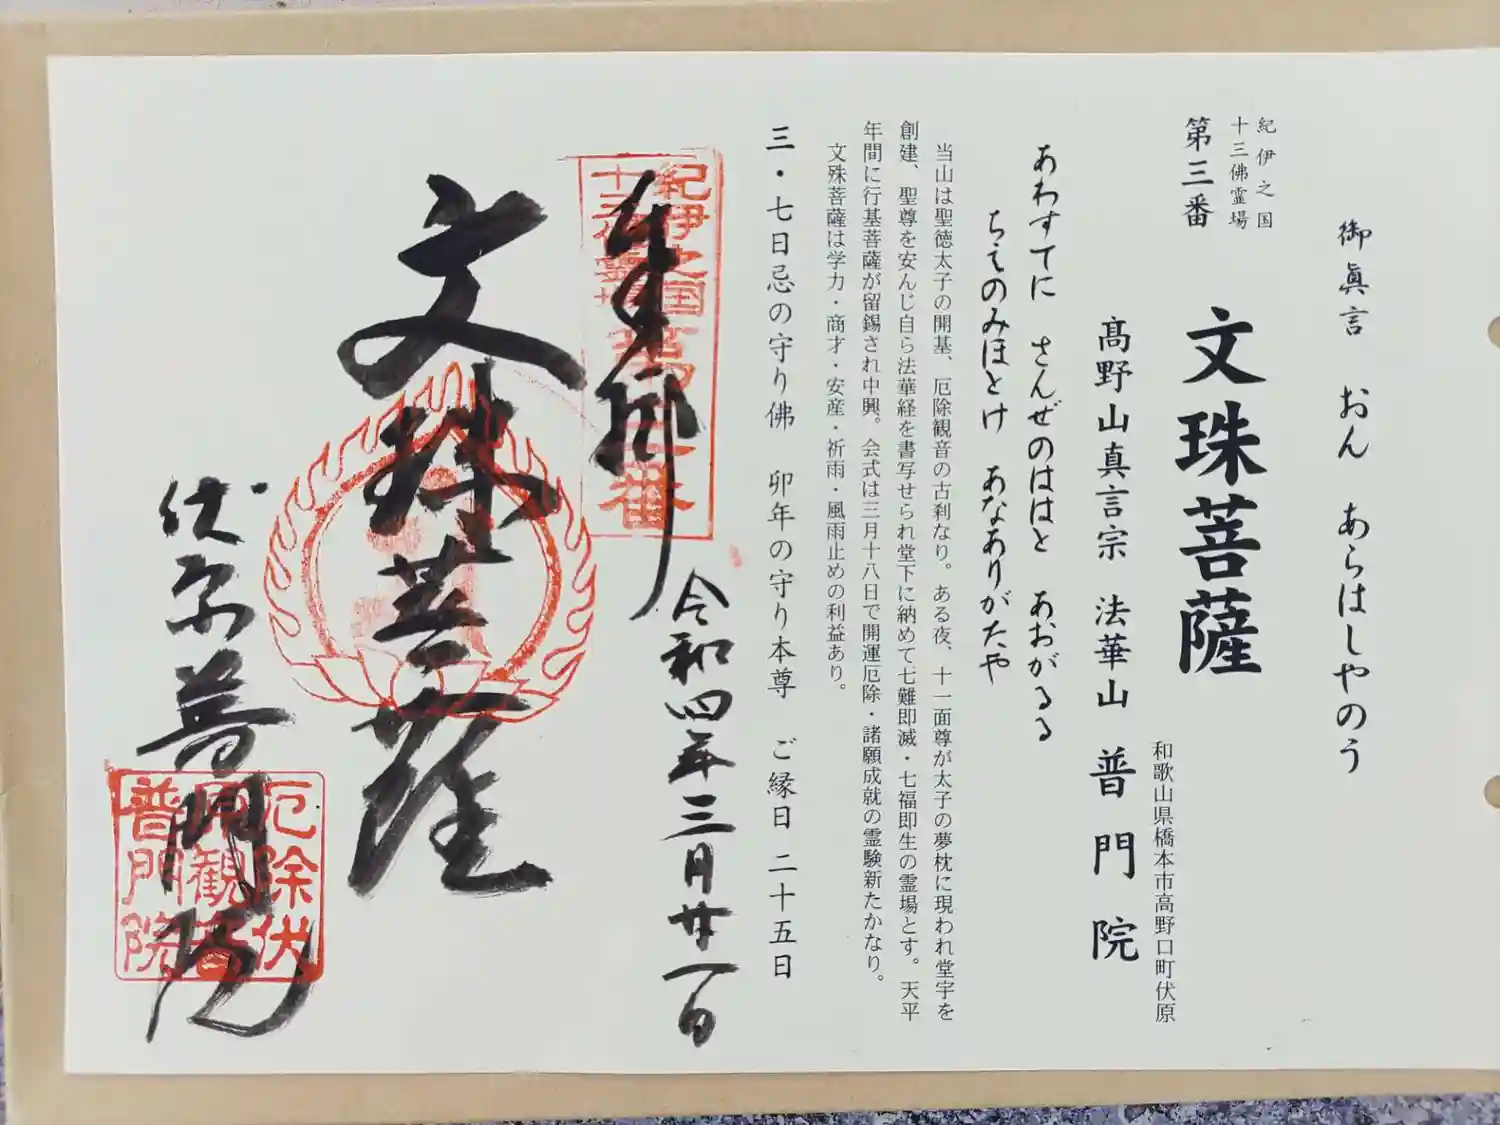 御眞言　おん　あらはしやのう
紀伊之国
十三佛霊場
第三番　文珠菩薩
和歌山県橋本市高野口町伏原
髙野山真言宗　法華山　普門院
あわすてに　さんぜのははと　あおがるる
ちえのみほとけ　あなありがたや
当山は聖徳太子の開基、厄除観音の古刹なり。ある夜、十一面尊が太子の夢枕に現われ堂宇を
創建、聖尊を安んじ自ら法華経を書写せられ堂下に納めて七難即滅・七福即生の霊場とす。天平
年間に行基菩薩が留錫され中興。会式は三月十八日で開運厄除・諸願成就の霊験新たかなり。
文殊菩薩は学力・商才・安産・祈雨・風雨止めの利益あり。
三・七日忌の守り佛　卯年の守り本尊　ご縁日二十五日
紀伊之国第三番
十三佛霊場
奉拝
令和四年三月廿一日
文珠菩薩
伏原普門院
厄除伏
原観音
普門院